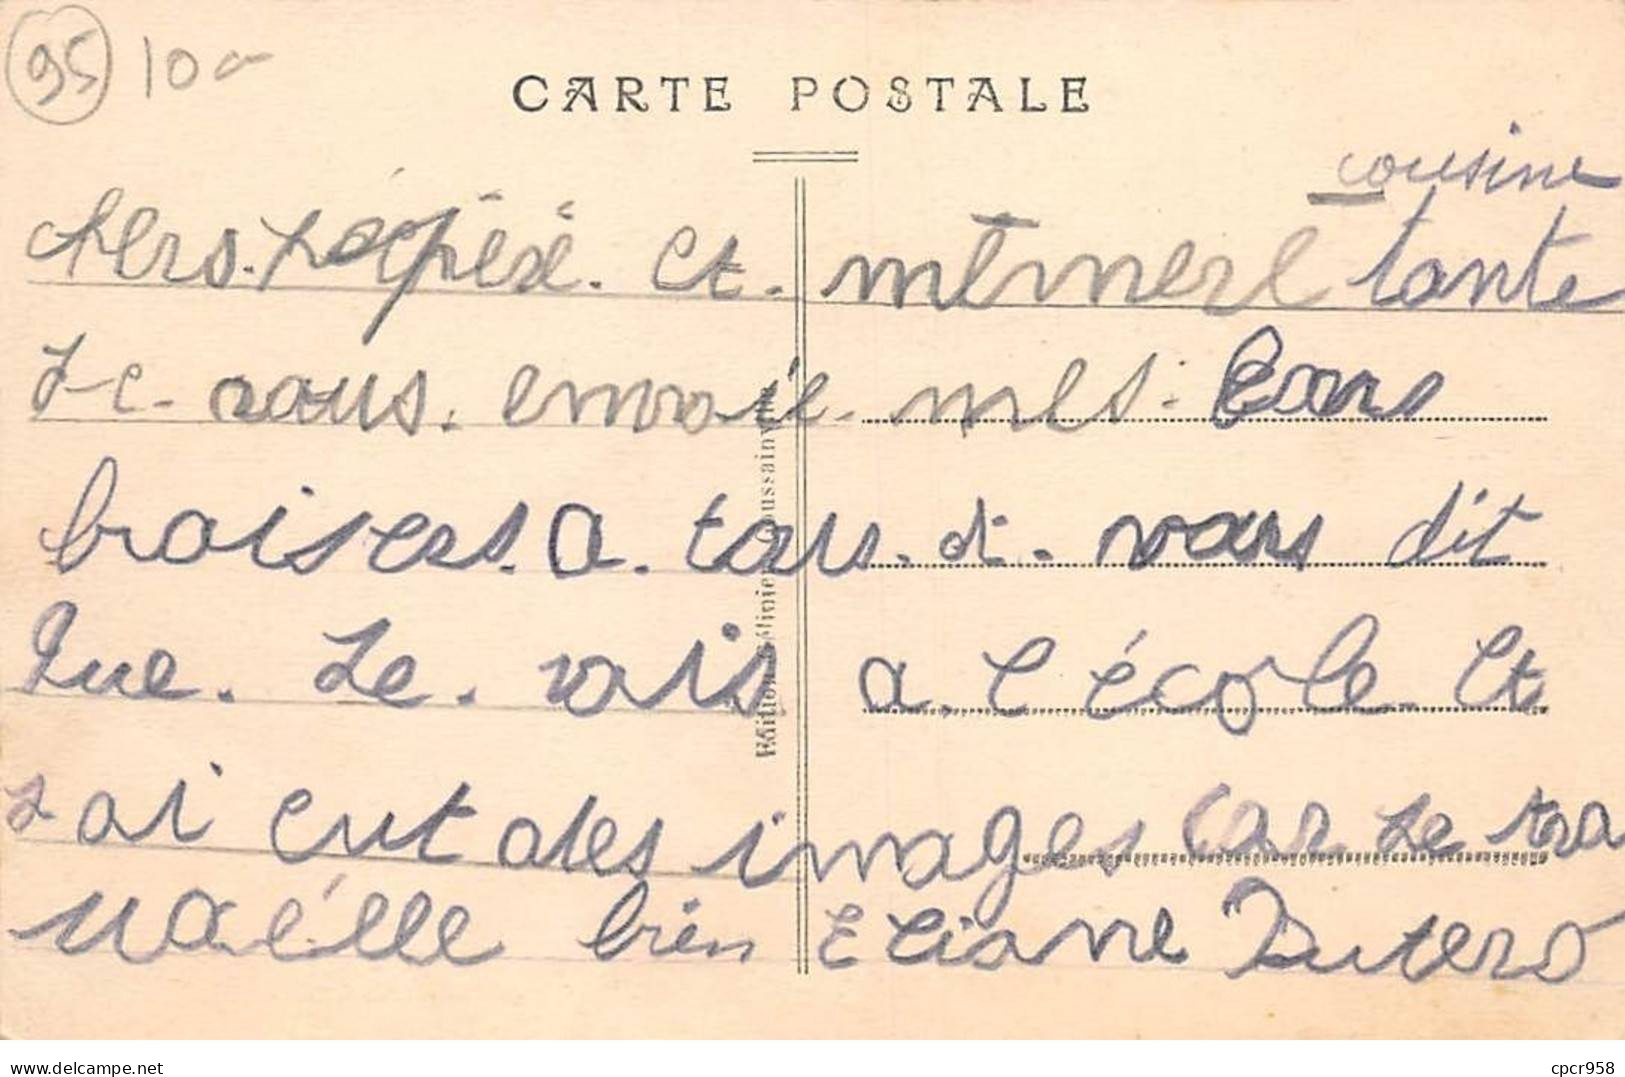 95 10
CARTE POSTALE
cousine
chers. pépéé. et. mémere tante
Je. vous. envoie. mes. bons
baisers. a. tous. et. vous dit
que. Je. vais a. l'école. et
J ai eut des images car Je tra
vaélle bien Eliane Dutero
Edition Goussainville
www.delcampe.net
cpcr958